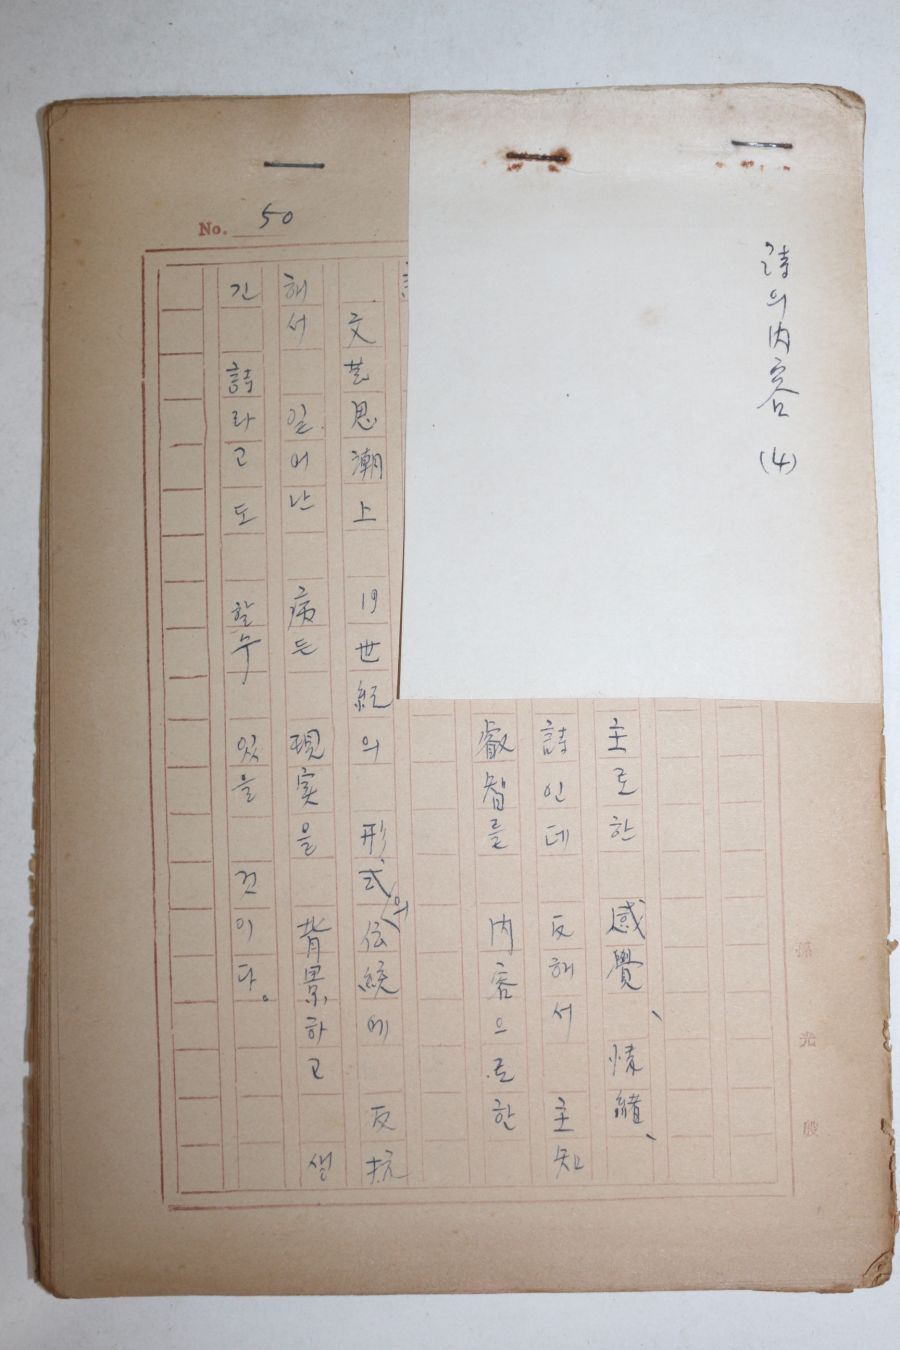 詩의 內容 (4)
No. 50
主로한 感覺、情緖、
詩인데 反해서 主知
叡智를 內容으로한
文芸思潮上 19世紀의 形式의 伝統에 反抗
해서 일어난 病든 現実을 背景하고 생
긴 詩라고도 할수 있을 것이다。